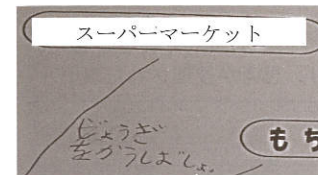 スーパーマーケット
じょうぎ
をかうしばしょ。
もち